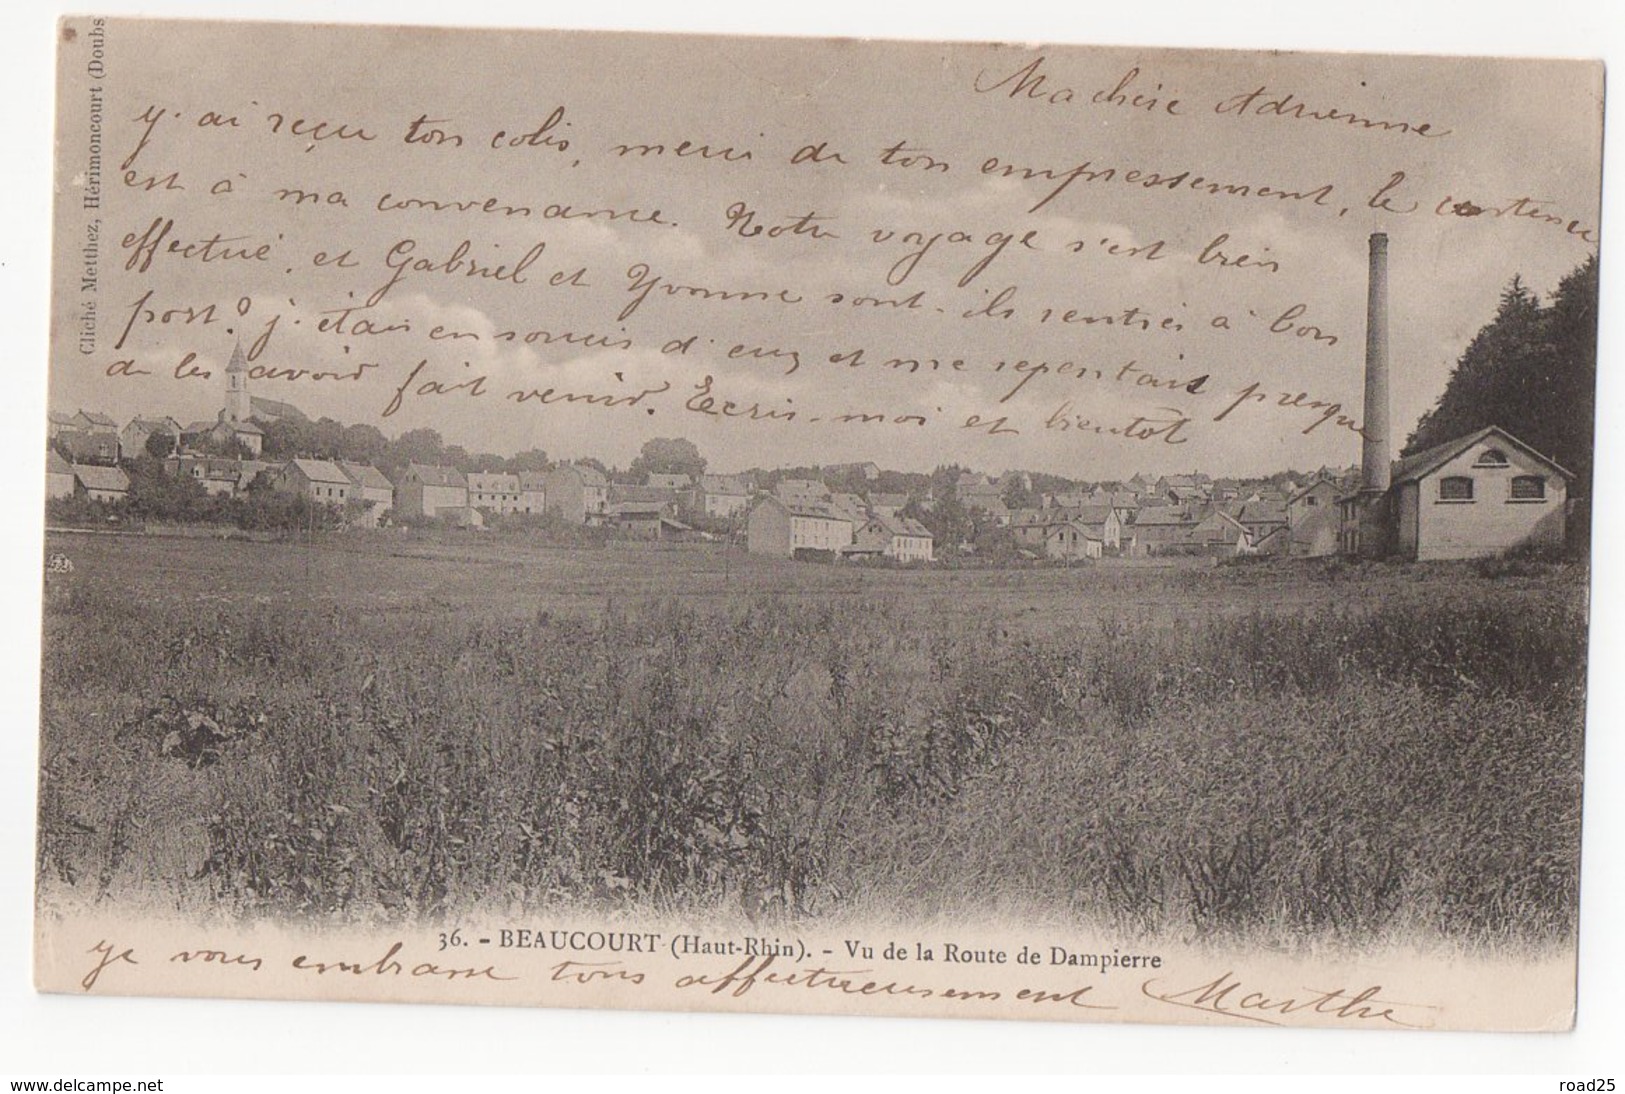 Ma chère Adrienne
y. ai reçu ton colis, merci de ton empressement, le contenu
est à ma convenance. Notre voyage s'est bien
effectué, et Gabriel et Yvonne sont-ils rentrés à bon
port? j. étais en soucis d'eux et me repentais presque
de les avoir fait venir. Ecris-moi et bientôt
Cliché Metthez, Hérimoncourt (Doubs
36. - BEAUCOURT (Haut-Rhin). - Vu de la Route de Dampierre
ye vous embrasse tous affectueusement Marthe
www.delcampe.net
road25